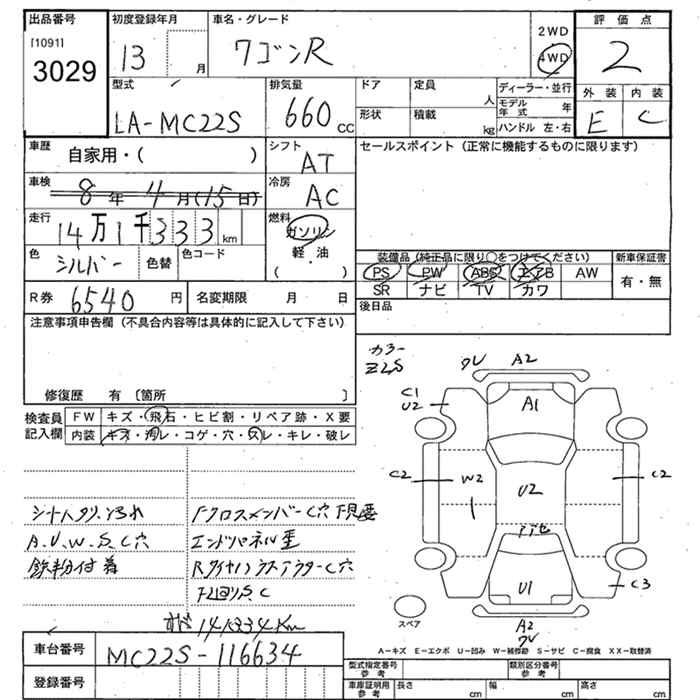 出品番号 初度登録年月 車名・グレード 2WD 評価点
[1091] 13 月 ワゴンR 4WD 2
3029
型式 排気量 ドア 定員 人 ディーラー・並行 外装 内装
LA-MC22S 660cc 形状 積載 kg モデル年式 年 E C
ハンドル 左・右
車歴 自家用・( ) シフト AT セールスポイント (正常に機能するものに限ります)
車検 8年4月(15日) 冷房 AC
走行 14万1千333km 燃料 ガソリン
軽・油
( )
色 シルバー 色替 色コード
装備品 (純正品に限り○をつけてください) 新車保証書
PS PW ABS エアB AW 有・無
SR ナビ TV カワ
R券 6540円 名変期限 月 日 後日品
注意事項申告欄 (不具合内容等は具体的に記入して下さい)
修復歴 有〔箇所 〕
検査員記入欄 FW キズ・飛石・ヒビ割・リペア跡・X要
内装 キズ・汚レ・コゲ・穴・スレ・キレ・破レ
カラー
Z2S
ワレ A2
C1
U2
A1
C2 W2 U2 C2
U1 C3
A2
ワレ
スペア
A.U.W.S.C穴
鉄粉付着
下クロスメンバーC穴
エンドパネル歪
下回りS.C
141334Km
A-キズ E-エクボ U-凹み W-補修跡 S-サビ C-腐食 XX-取替済
車台番号 MC22S-116634
登録番号
型式指定番号 参考 類別区分番号 参考
車庫証明用 参考 長さ cm 幅 cm 高さ cm